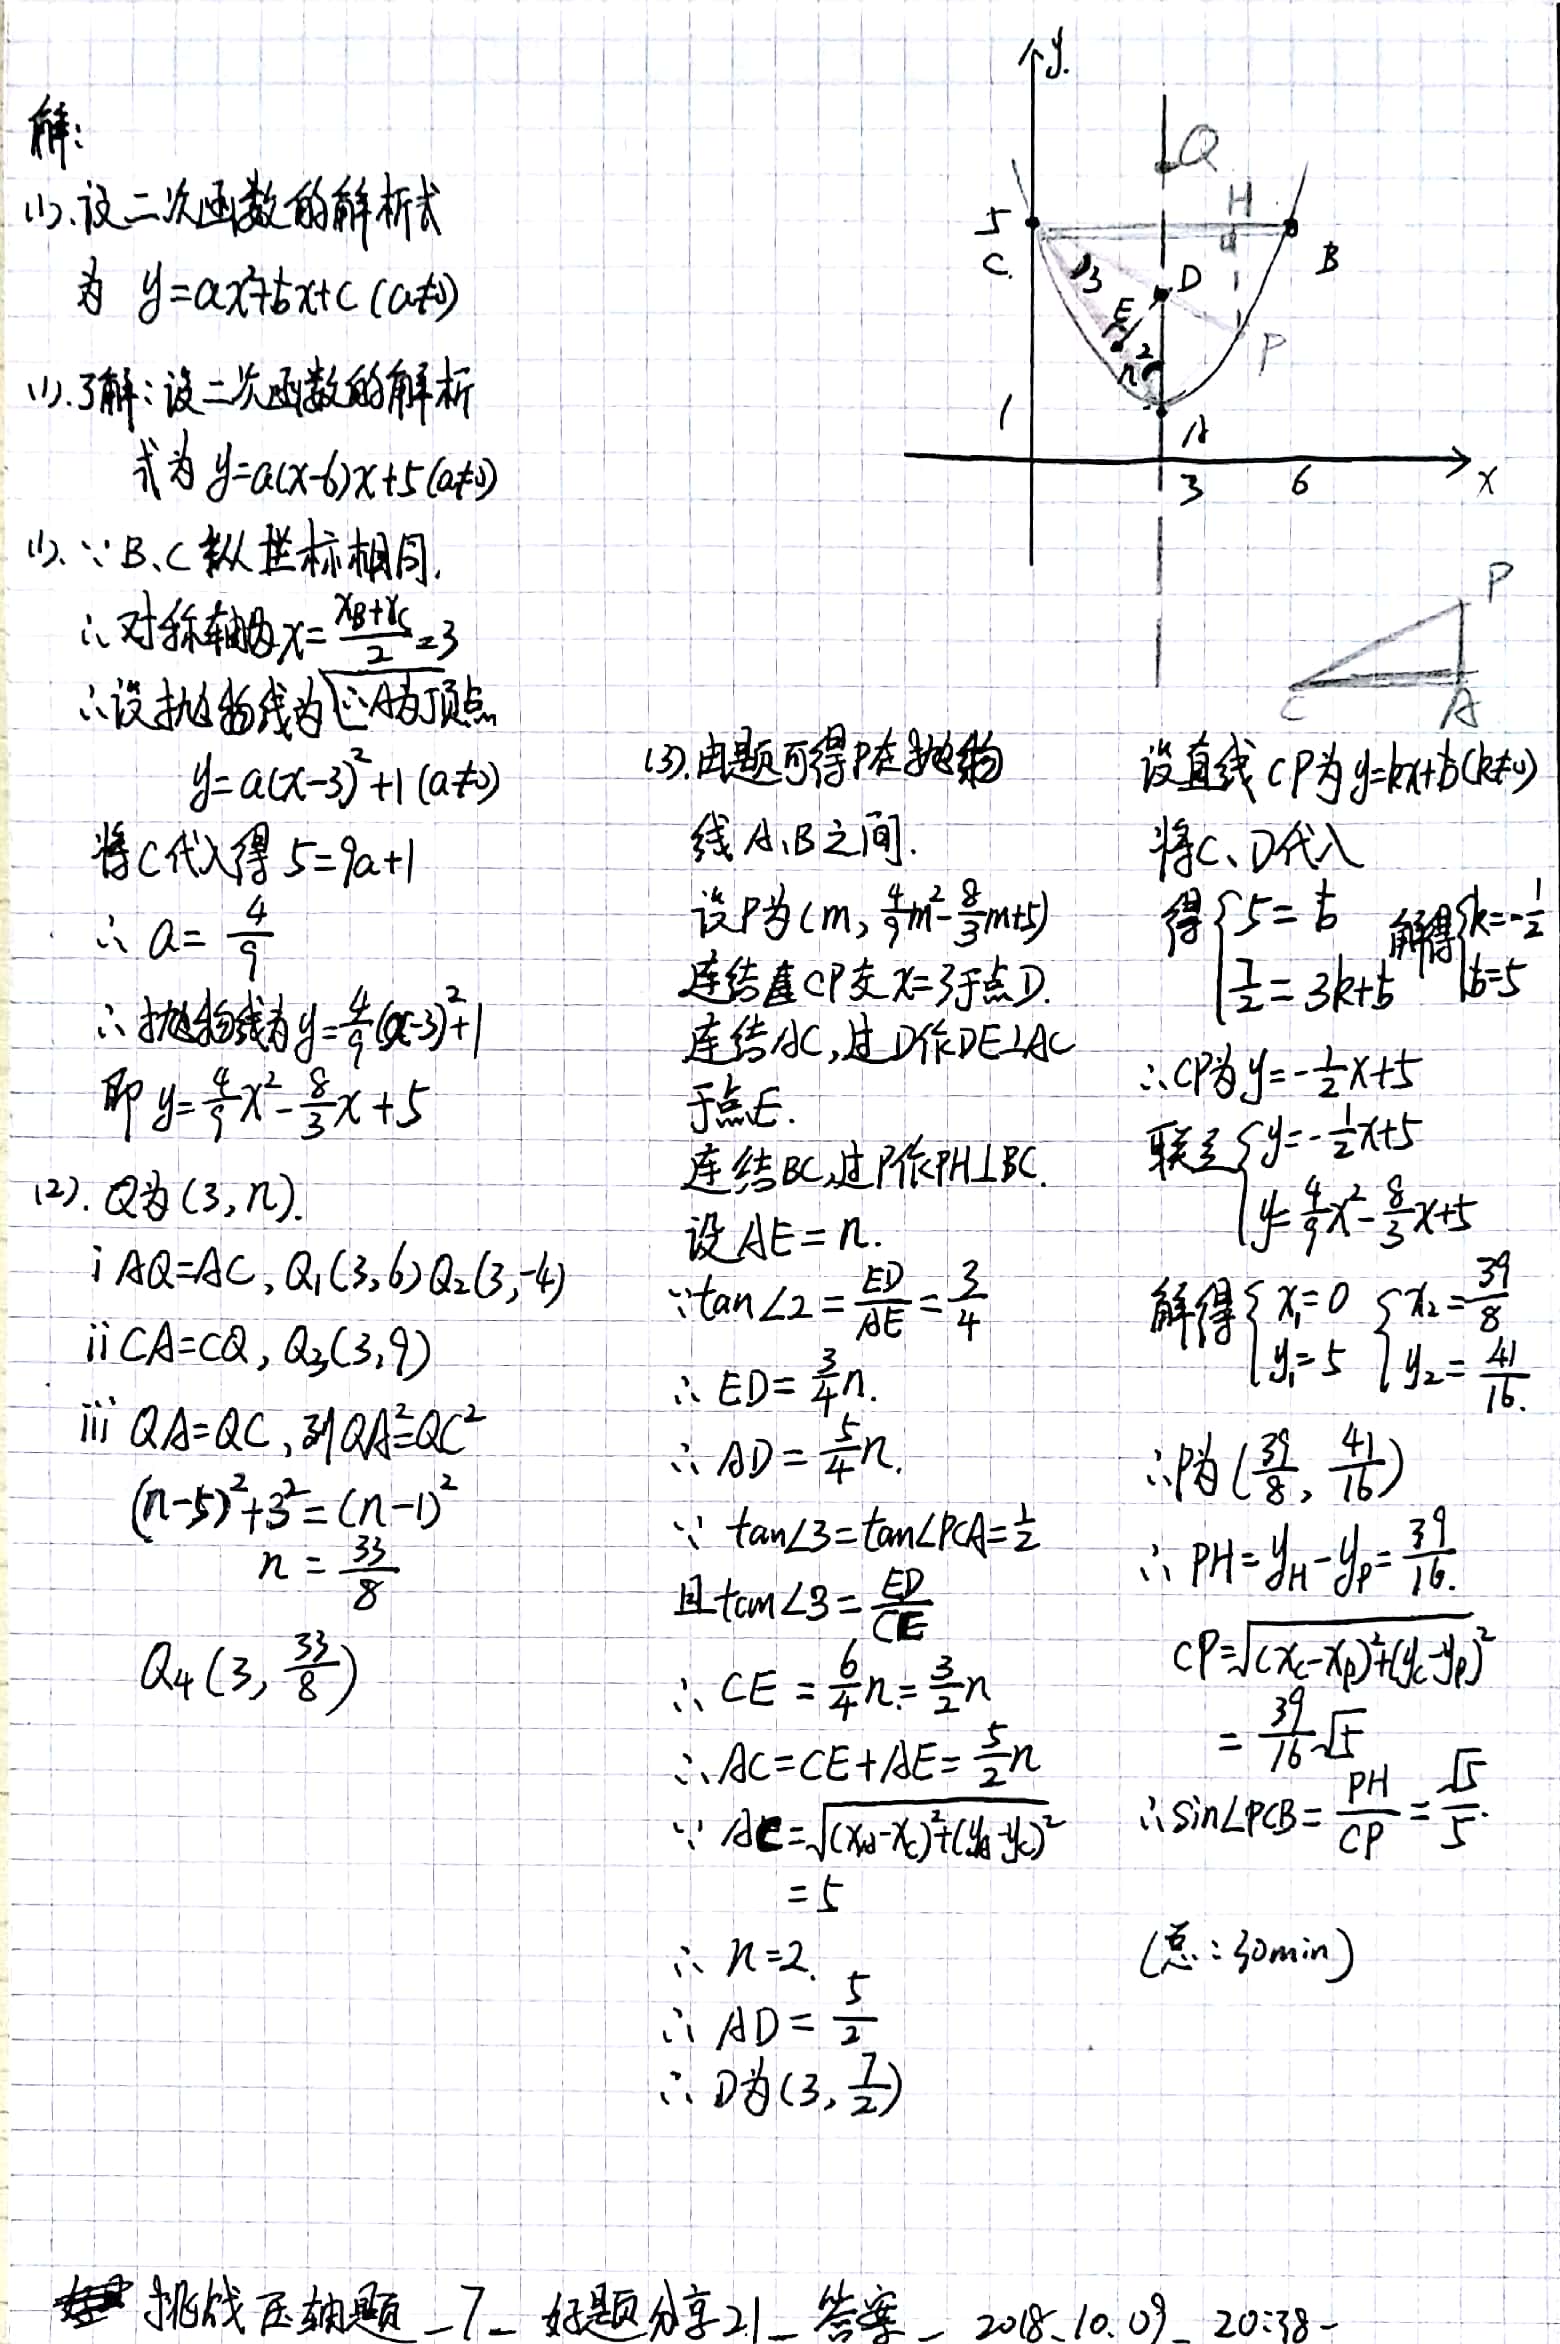 解:
(1).设二次函数的解析式
为 y=ax²+bx+c (a≠0)
(1).解:设二次函数的解析
式为 y=a(x-6)x+5(a≠0)
(1).∵B、C纵坐标相同.
∴对称轴为x=\frac{x_B+x_C}{2}=3
∴设抛物线为 ∵A为顶点
y=a(x-3)²+1 (a≠0)
将C代入得 5=9a+1
∴ a=\frac{4}{9}
∴抛物线为y=\frac{4}{9}(x-3)²+1
即 y=\frac{4}{9}x²-\frac{8}{3}x+5
(2). Q为(3,n).
i AQ=AC, Q₁(3,6) Q₂(3,-4)
ii CA=CQ, Q₃(3,9)
iii QA=QC,则QA²=QC²
(n-5)²+3²=(n-1)²
n=\frac{33}{8}
Q₄(3,\frac{33}{8})
y.
Q
5
H
C.
B
3
D
E
P
n
2
1
A
3
6
x
P
C
A
(3).由题可得P在抛物
线A、B之间.
设P为(m,\frac{4}{9}m²-\frac{8}{3}m+5)
连结CP交x=3于点D.
连结AC,过D作DE⊥AC
于点E.
连结BC,过P作PH⊥BC.
设AE=n.
∵tan∠2=\frac{ED}{AE}=\frac{3}{4}
∴ ED=\frac{3}{4}n.
∴ AD=\frac{5}{4}n.
∵ tan∠3=tan∠PCA=\frac{1}{2}
且tan∠3=\frac{ED}{CE}
∴ CE=\frac{6}{4}n=\frac{3}{2}n
∴AC=CE+AE=\frac{5}{2}n
∵ AC=\sqrt{(x_A-x_C)²+(y_A-y_C)²}
=5
∴ n=2.
∴ AD=\frac{5}{2}
∴ D为(3,\frac{7}{2})
设直线CP为y=kx+b(k≠0)
将C、D代入
得{5=b 解得{k=-\frac{1}{2}
\frac{7}{2}=3k+b b=5
∴CP为y=-\frac{1}{2}x+5
联立{y=-\frac{1}{2}x+5
y=\frac{4}{9}x²-\frac{8}{3}x+5
解得{x₁=0 {x₂=\frac{39}{8}
y₁=5 y₂=\frac{41}{16}.
∴P为(\frac{39}{8},\frac{41}{16})
∴ PH=y_H-y_P=\frac{39}{16}.
CP=\sqrt{(x_C-x_P)²+(y_C-y_P)²}
=\frac{39}{16}\sqrt{5}
∴sin∠PCB=\frac{PH}{CP}=\frac{\sqrt{5}}{5}.
(总:30min)
挑战压轴题_7_好题分享21_答案_2018.10.09_20:38-